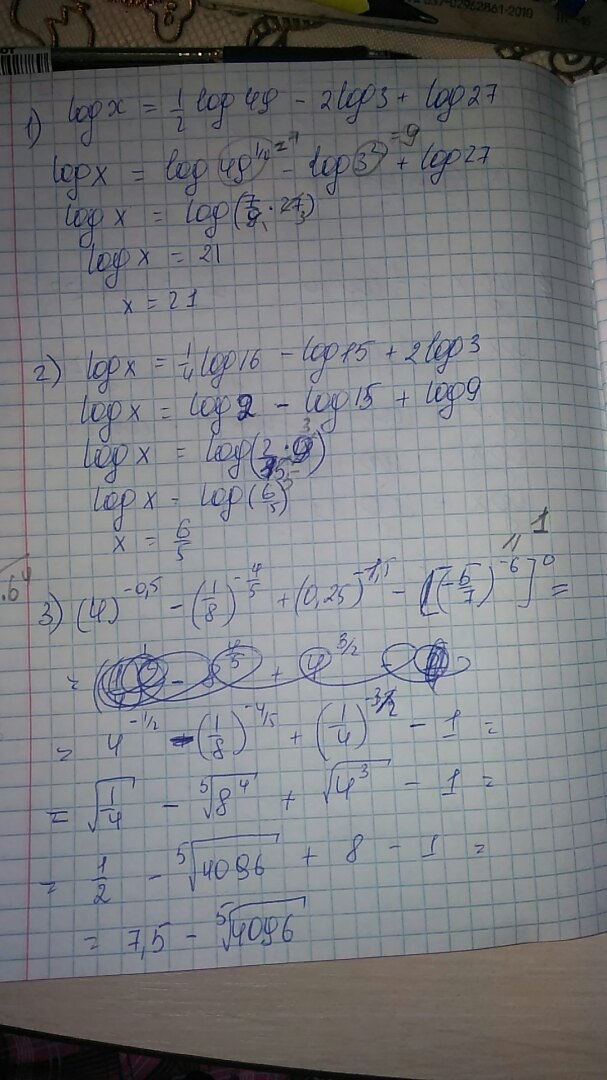 1) log x = 1/2 log 49 - 2log3 + log 27
log x = log 49^(1/2) =7 - log 3² =9 + log 27
log x = log(7/9 · 27)
log x = 21
x = 21
2) log x = 1/4 log 16 - log 15 + 2log3
log x = log 2 - log 15 + log 9
log x = log(2·9/15)
log x = log(6/5)
x = 6/5
3) (4)^(-0,5) - (1/8)^(-4/5) + (0,25)^(-1,5) - [(-6/7)^(-6)]^0 =
= 4^(-1/2) - (1/8)^(-4/5) + (1/4)^(-3/2) - 1 =
= √(1/4) - ⁵√(8⁴) + √(4³) - 1 =
= 1/2 - ⁵√4096 + 8 - 1 =
= 7,5 - ⁵√4096